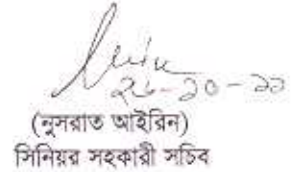 ২৬-১০-২২
(নুসরাত আইরিন)
সিনিয়র সহকারী সচিব